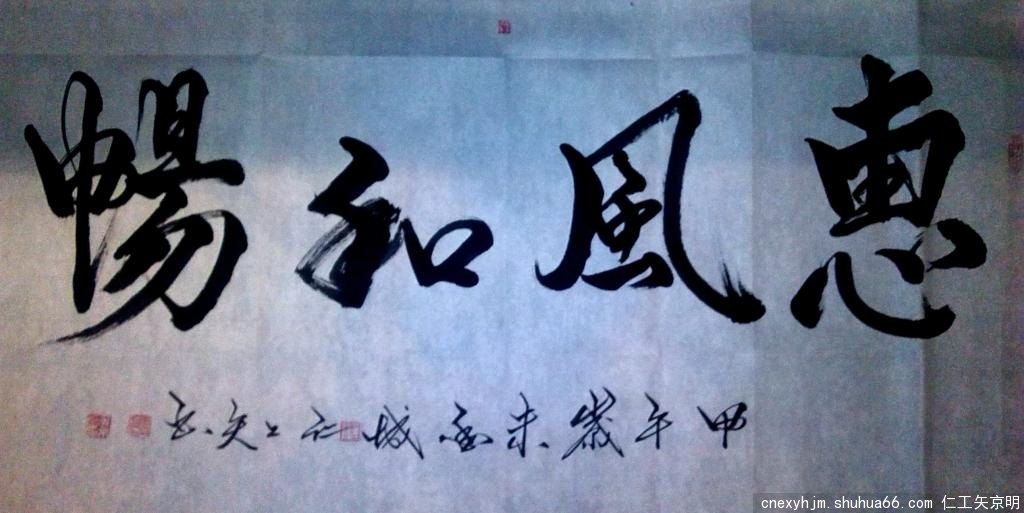 惠風和暢
甲午歲末金城仁工矢書
cnexyhjm.shuhua66.com 仁工矢京明